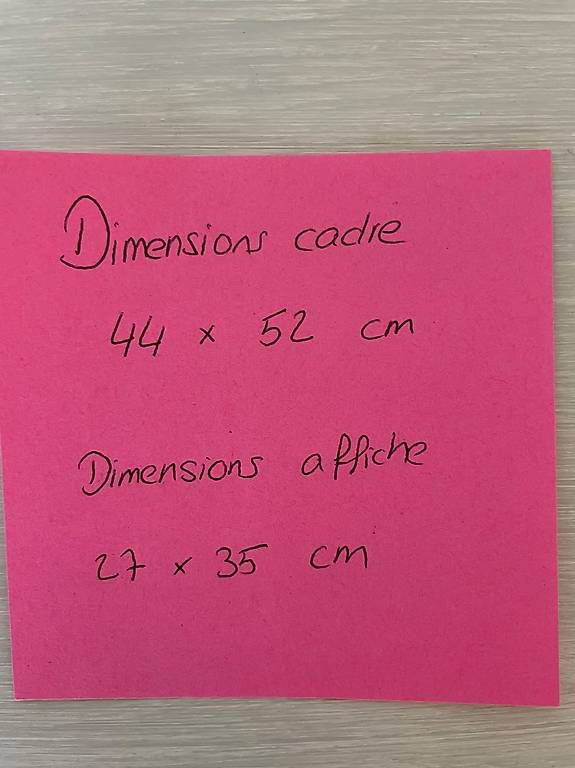 Dimensions cadre
44 x 52 cm
Dimensions affiche
27 x 35 cm